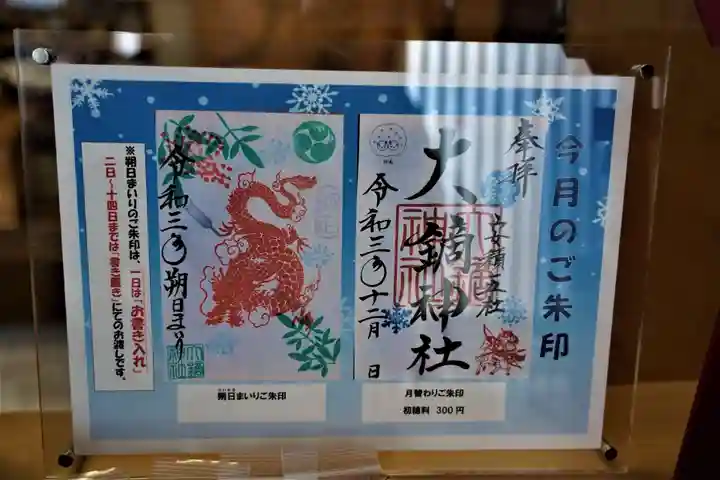 今月のご朱印
奉拝
安積五社
大鏑神社
令和三年十二月 日
月替わりご朱印
初穂料 300円
令和三年 朔日まいり
朔日まいりご朱印
※朔日まいりのご朱印は、一日は「お書き入れ」
二日~十四日までは「書き置き」にてのお渡しです。